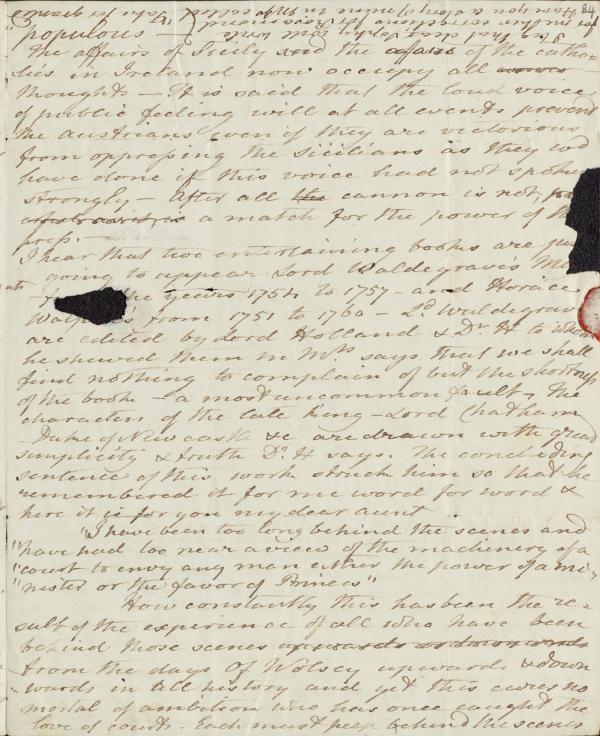 84
populous —
The affairs of Sicily and the affairs of the catho-
lics in Ireland now occupy all
thoughts — It is said that the loud voice
of public feeling will at all events prevent
the Austrians even if they are victorious
from oppressing the Sicilians as they wd
have done if this voice had not spoken
strongly — After all the cannon is not
a match for the power of the
press. —
I hear that two entertaining books are just
going to appear Lord Waldegrave's
the years 1754 to 1757 — and Horace
from 1751 to 1760 — Ld Waldegrave
are edited by Lord Holland & Dr H to whom
he shewed them in Mss says that we shall
find nothing to complain of but the shortness
of the book — a most uncommon fault — The
characters of the late King — Lord Chatham
— Duke of Newcastle &c are drawn with great
simplicity & truth Dr H says. The concluding
sentence of this work struck him so that he
remembered it for me word for word &
here it is for you my dear aunt
"I have been too long behind the scenes and
"have had too near a view of the machinery of a
"court to envy any man either the power of a mi-
"nister or the favor of Princes"
How constantly this has been the re-
sult of the experience of all who have been
behind those scenes upwards or downwards
from the days of Wolsey upwards & down
wards in all history and yet this cures no
mortal of ambition who has once caught the
love of courts — Each must peep behind the scenes